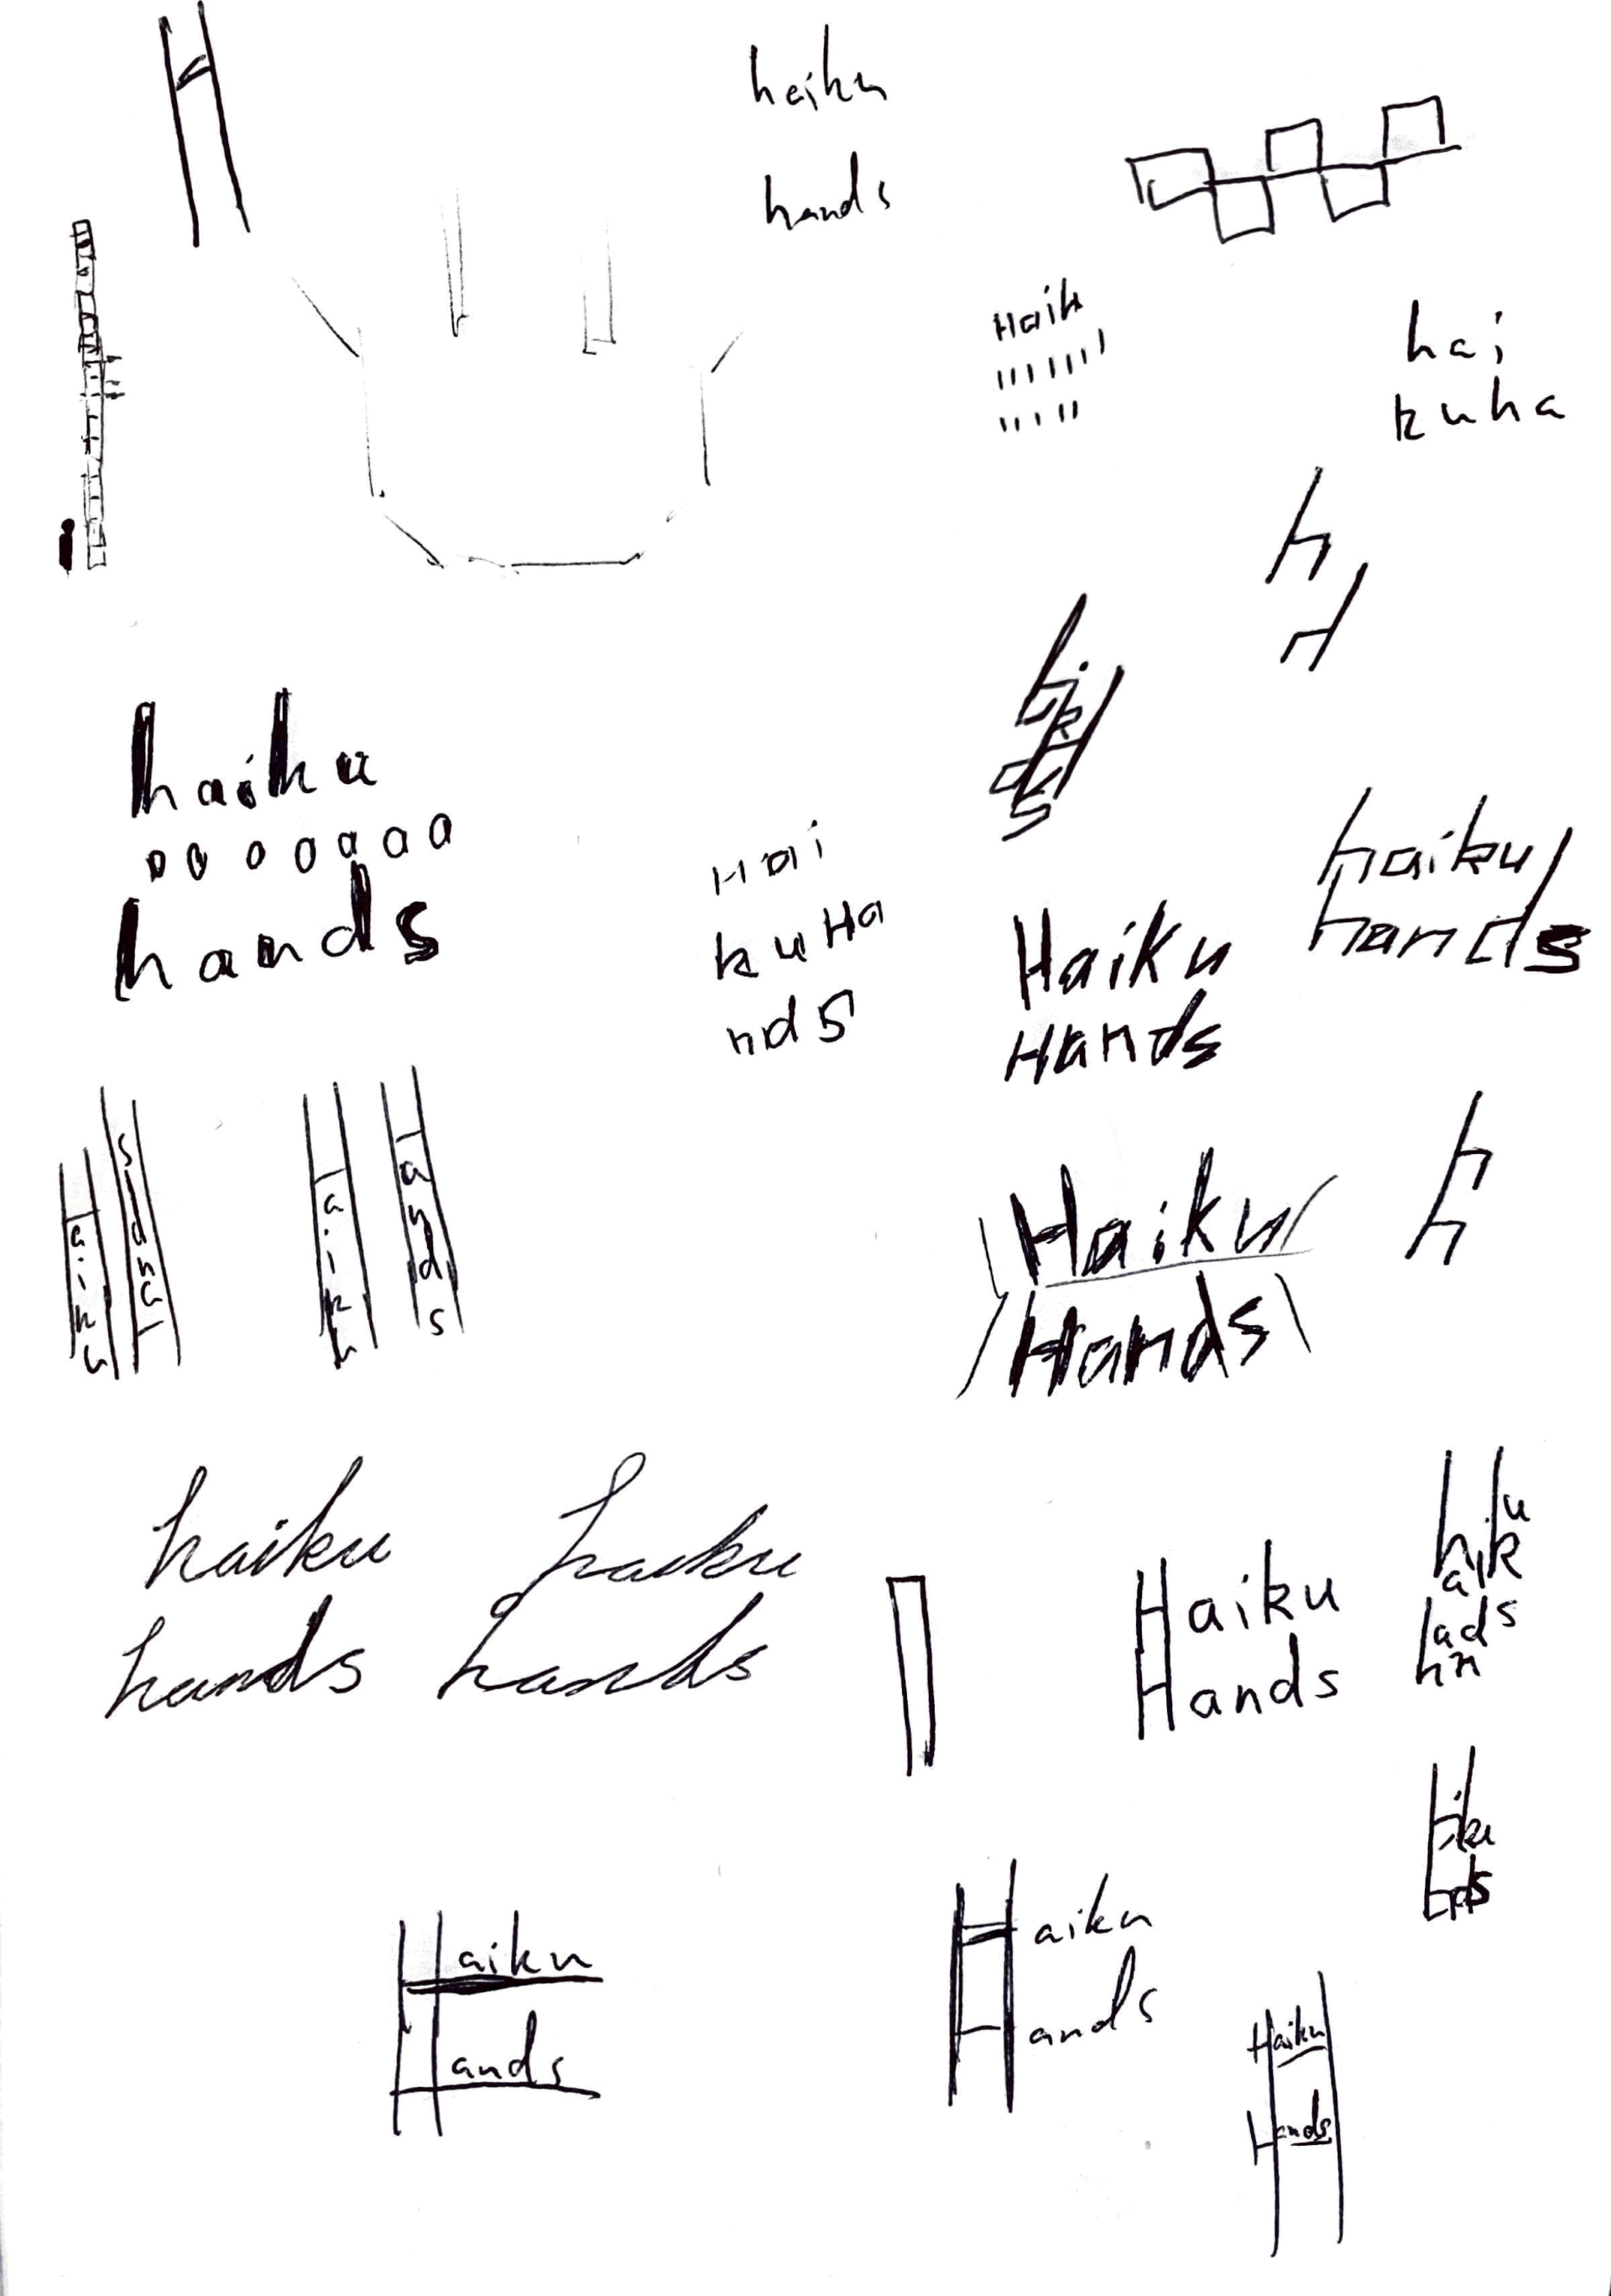 H
haiku
hands
Haik
hai
kuha
h
d
haiku
hands
Hai
kuHa
nds
haiku
hands
Haiku
Hands
Haiku
Hands
Haiku
Hands
h
h
Haiku
Hands
haiku
hands
haiku
hands
Haiku
Hands
haiku
hands
Haiku
Hands
Haiku
Hands
Haiku
Hands